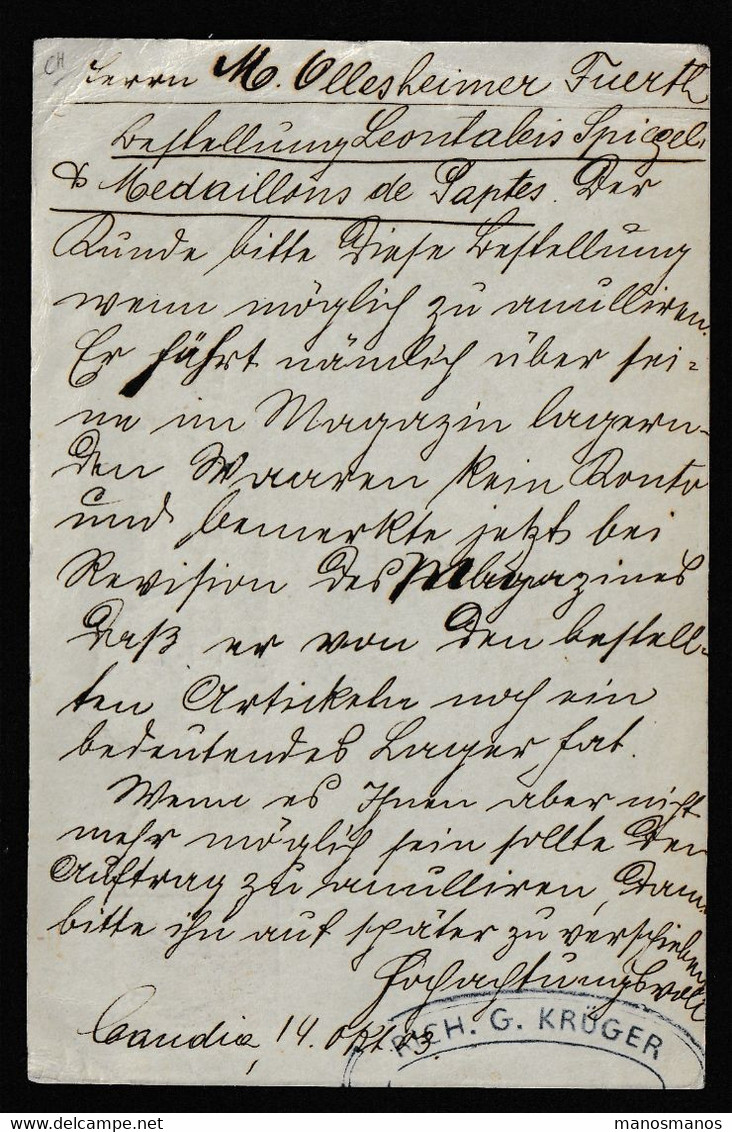 CH
Herrn M. Ollesheimer Fuerth
Bestellung Leontakis Spiegel
& Medaillons de Paptes. Der
Kunde bitte diese Bestellung
wenn möglich zu anulliren.
Er fährt nämlich über sei-
ne im Magazin lagern-
den Waaren kein Konto
und bemerkte jetzt bei
Revision des Magazines
daß er von den bestell-
ten Artickeln noch ein
bedeutendes Lager hat.
Wenn es Ihnen aber nicht
mehr möglich sein sollte den
Auftrag zu anulliren, dann
bitte ihn auf später zu verschieben
Hochachtungsvoll
Candia, 14. Okt.
RICH. G. KRÜGER
manosmanos